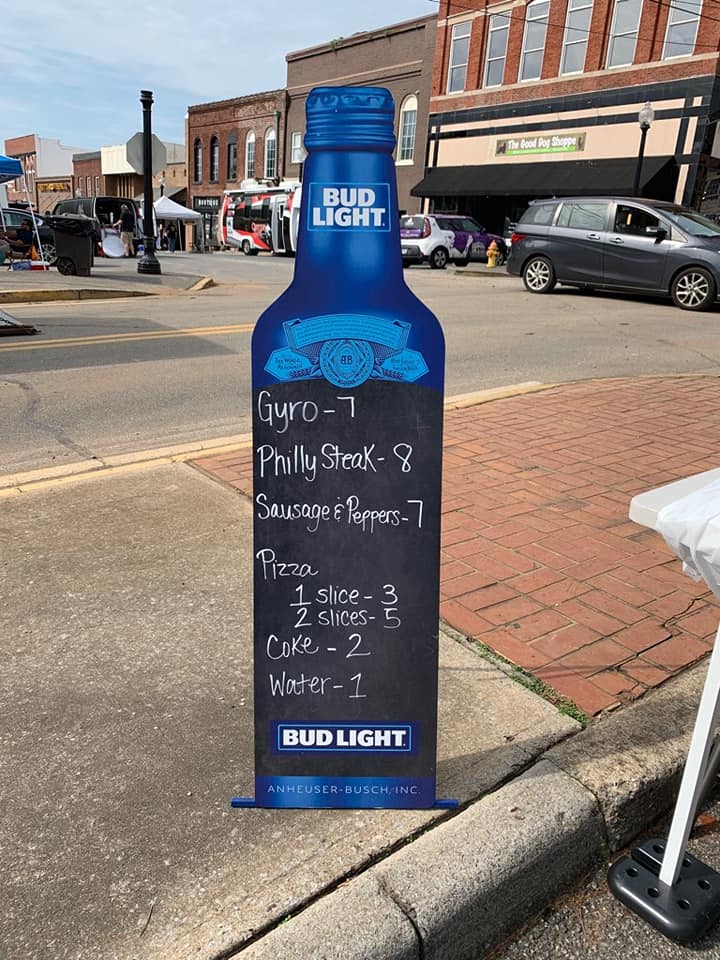 The Good Dog Shoppe
BUD
LIGHT
Gyro - 7
Philly Steak - 8
Sausage & Peppers - 7
Pizza
1 slice - 3
2 slices - 5
Coke - 2
Water - 1
BUD LIGHT
ANHEUSER-BUSCH, INC.